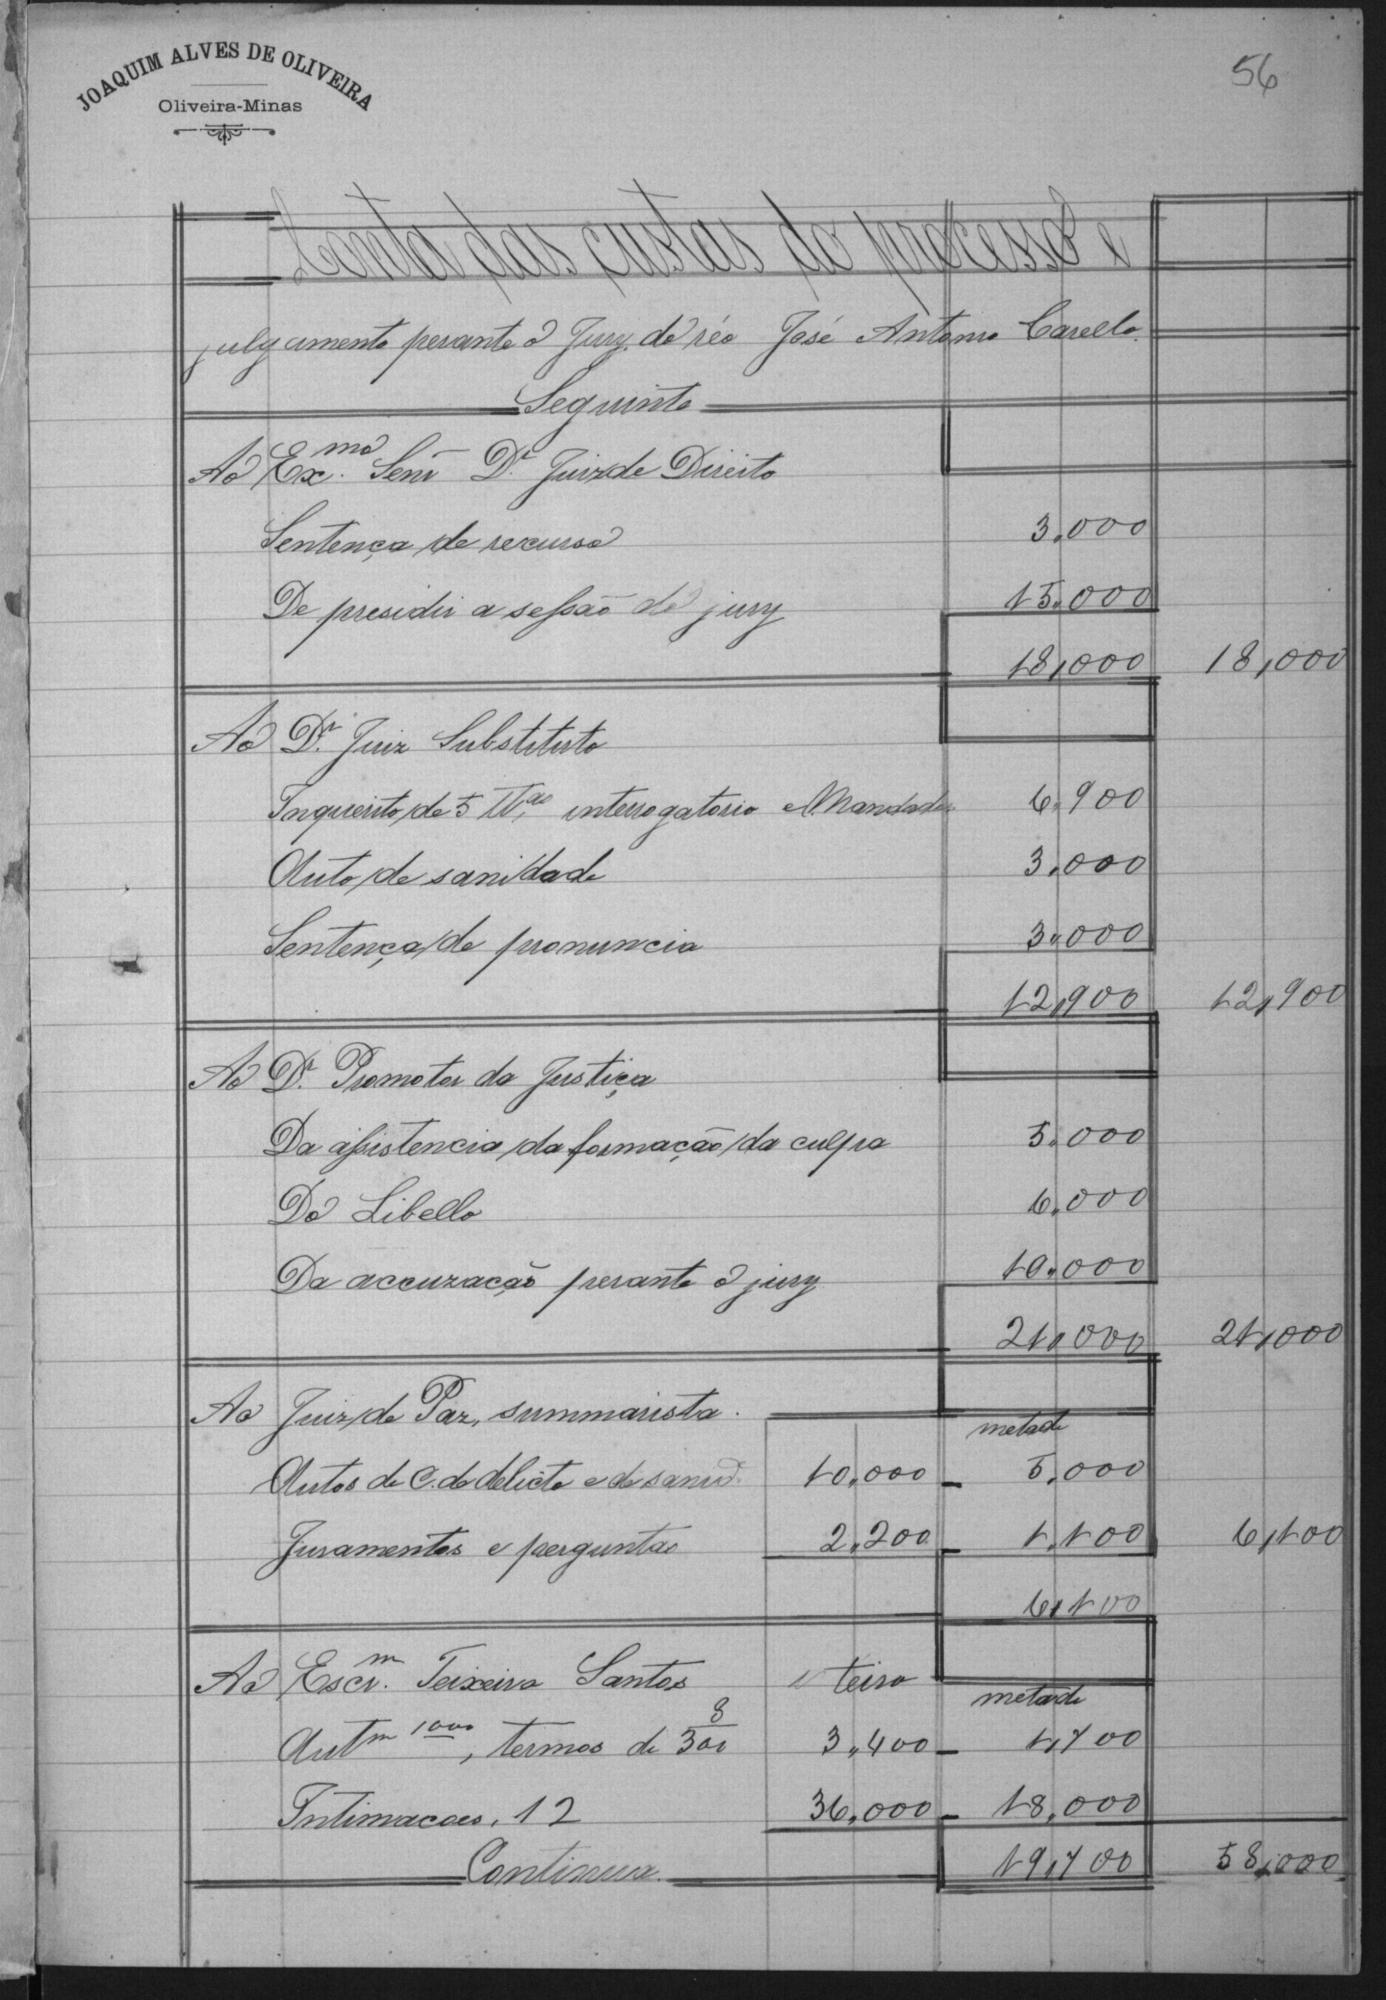 JOAQUIM ALVES DE OLIVEIRA
Oliveira-Minas
56
Conta das custas do processo e
julgamento perante o Jury, do réo José Antonio Carello.
Seguinte
Ao Ex.mo Senr Dr. Juiz de Direito
Sentença de recurso 3,000
De presidir a sessão do jury 15,000
18,000 18,000
Ao Dr. Juiz Substituto
Inquerito de 5 T.as interrogatorio e Mandado 6,900
Auto de sanidade 3,000
Sentença de pronuncia 3,000
12,900 12,900
Ao Dr. Promotor da Justiça
Da assistencia da formação da culpa 5,000
Do Libello 6,000
Da accuzação perante o jury 10,000
21,000 21,000
Ao Juiz de Paz, summarista. metade
Autos de C. de delicto e de sanid.e 10,000 - 5,000
Juramentos e perguntas 2,200 - 1,100 6,100
6,100
Ao Escr.m Teixeira Santos metade
Autm 1000, termos de 300 8 3,400 - 1,700
Intimacoes, 12 36,000 - 18,000
Continua. 19,700 58,000